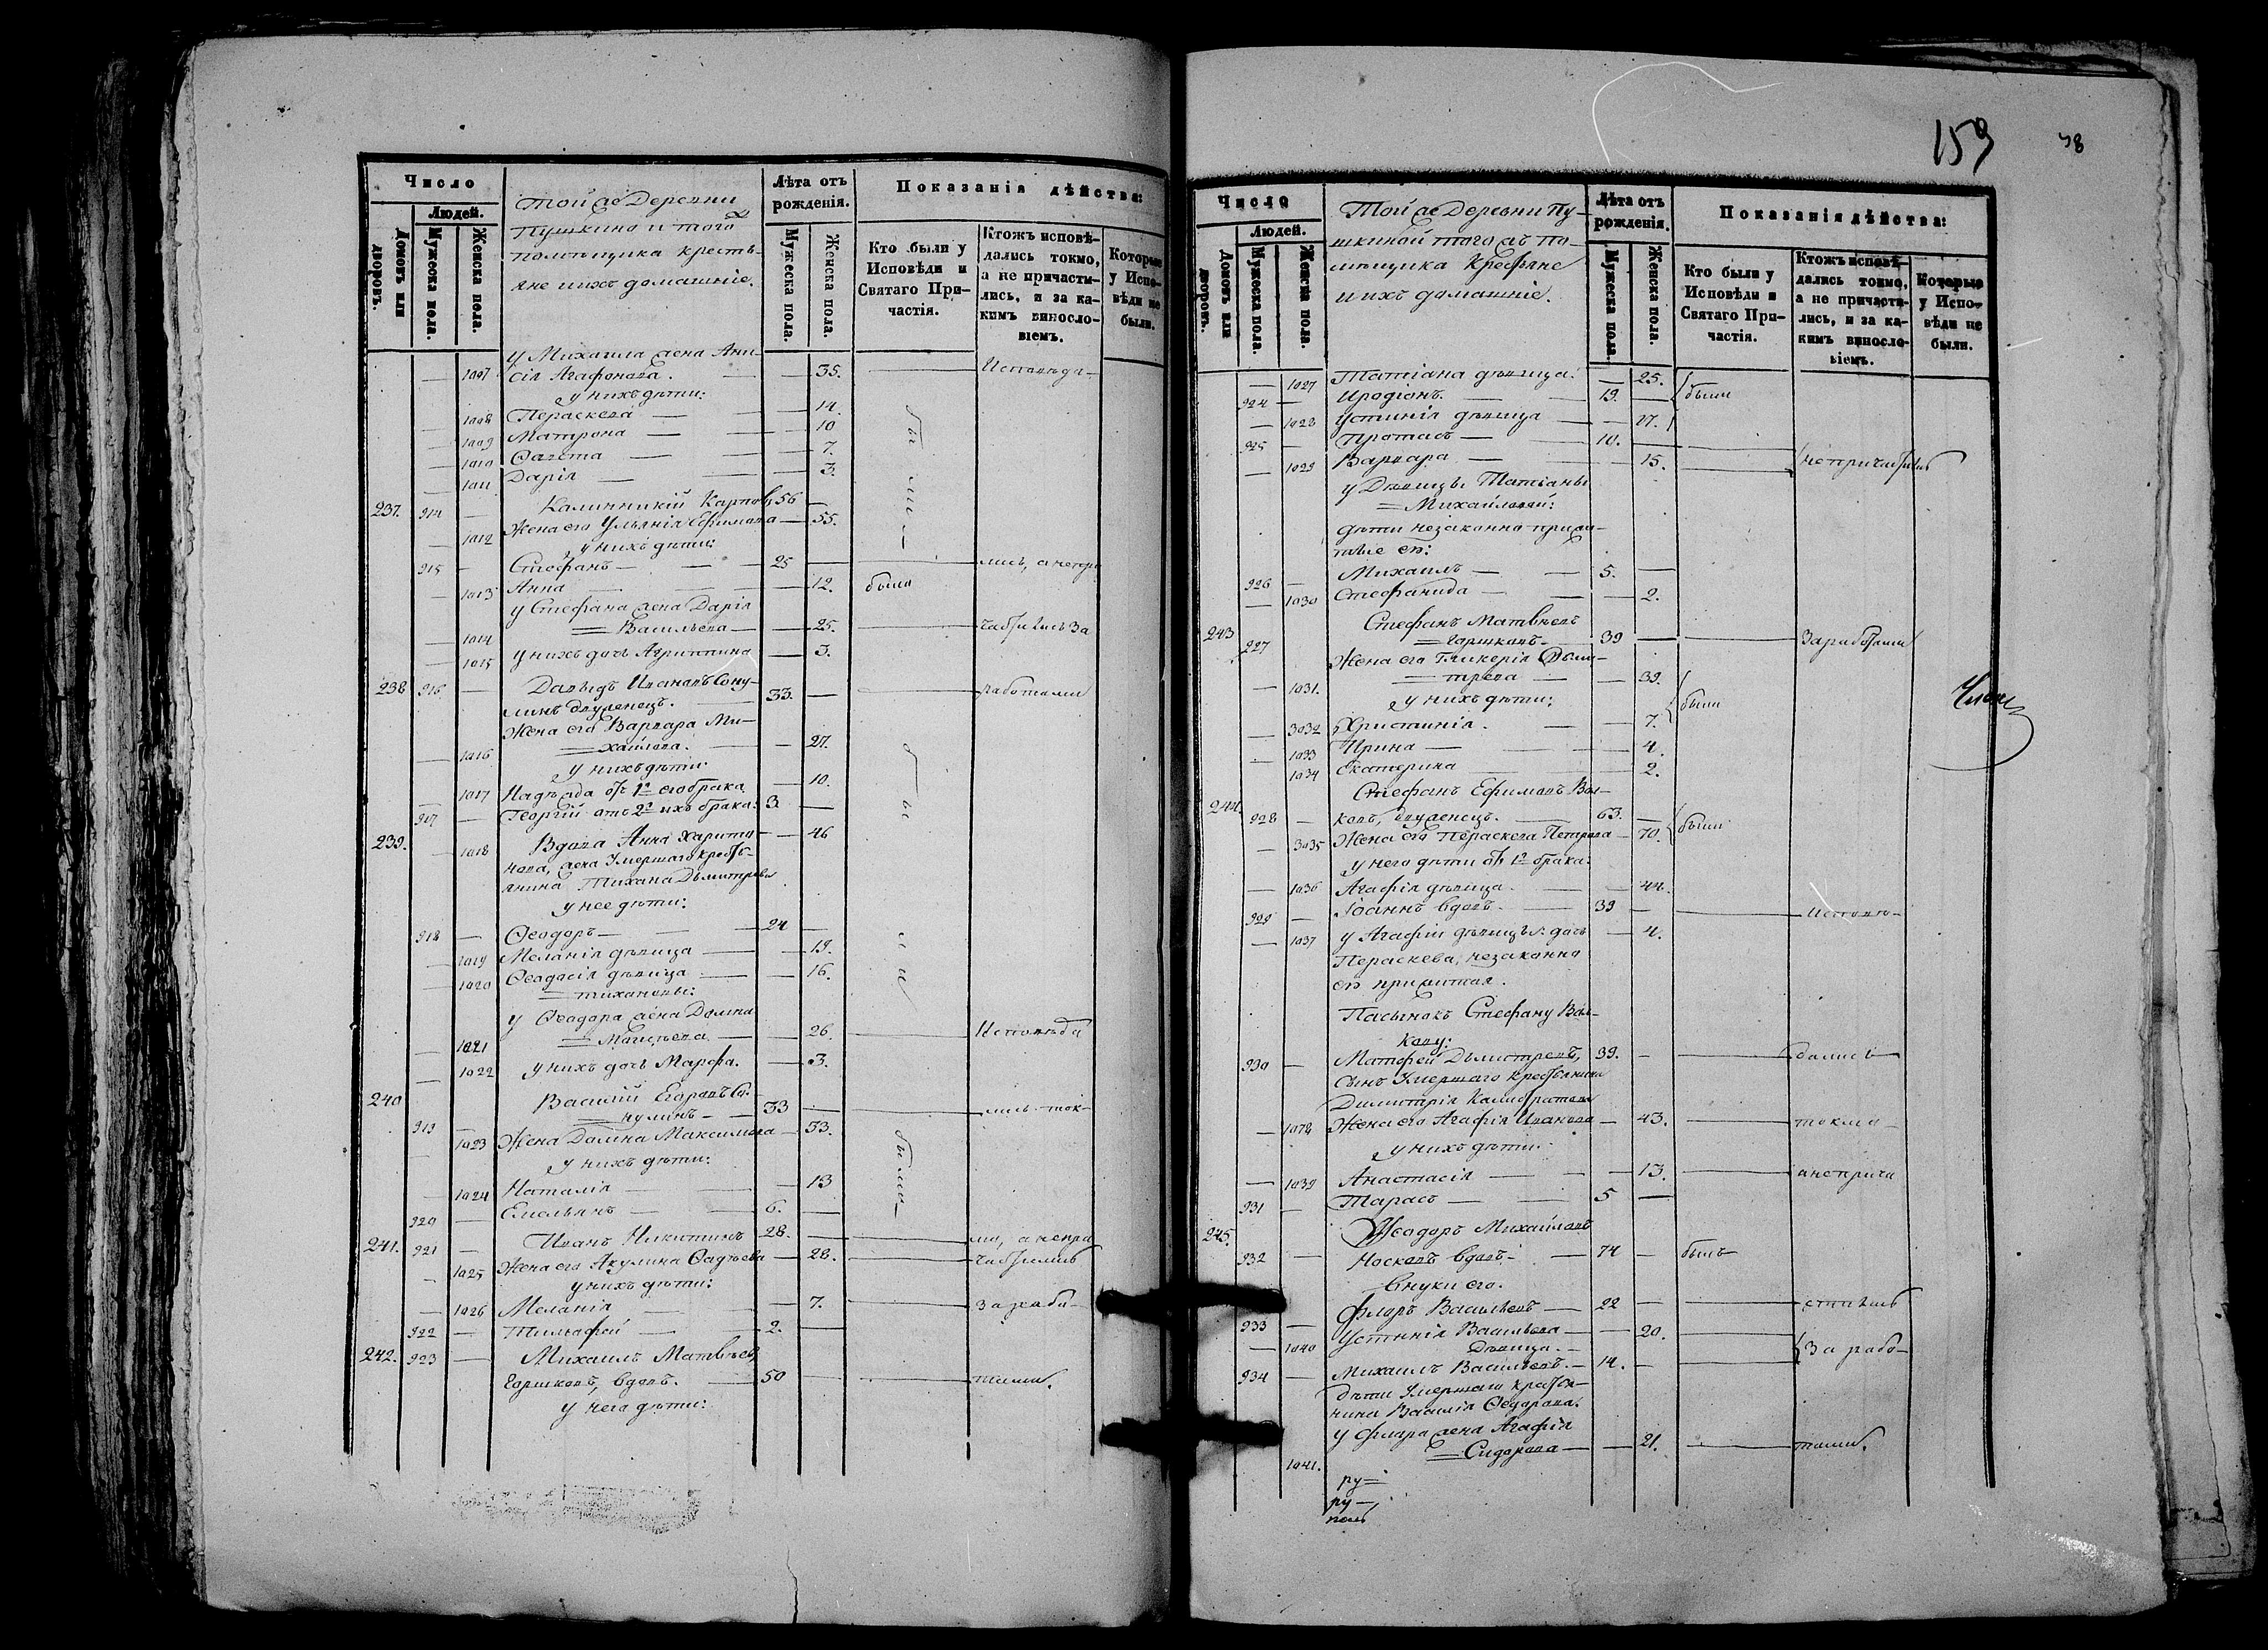 Число
Людей.
Домовъ или дворовъ.
Мужеска пола.
Женска пола.
Той же Деревни
Пушкино и того
помѣщика кресть-
яне и ихъ домашніе.
Лѣта отъ рожденія.
Мужеска пола.
Женска пола.
Показанія дѣйства:
Кто были у Исповѣди и Святаго При-частія.
Ктожъ исповѣ-дались токмо, а не причасты-лись, и за ка-кимъ винослo-віемъ.
Которые у Испо-вѣди не были.
У Михаила жена Ани-
1007 сія Агафонова. — 35. — Исповѣда-
у нихъ дѣти:
1008 Параскева — 14.
1009 Матрона — 10
1010 — 7.
1011 Дарія — 3.
были
237. 914 — Калинникій Карповъ 56 —
1012 Жена его Ульянія Ефимова — 55.
у нихъ дѣти:
915 — Стефанъ — 25 — лись, а непри
1013 Анна — 12. была
у Стефана жена Дарія
1014 Васильева — 25. — частились за
1015 у нихъ дочь Агриппина — 3.
238 916 — Давыдъ Ивановъ Сону-
линъ двуженецъ. — 33. — работами
Жена его Варвара Ми-
1016 хайлова. — 27.
у нихъ дѣти:
1017 Надежда отъ 1го его брака — 10.
917 — Георгій отъ 2го ихъ брака: 3 —
были
239. 1018 Вдова Анна Харито- — 46
нова, жена умершаго кресть-
янина Тихона Дмитріева
у нее дѣти:
918 — Ѳеодоръ — 24 —
1019 Меланія дѣвица — 19.
1020 Ѳеодосія дѣвица — 16.
Тихоновы:
у Ѳеодора жена Домна
1021 — 26 — Исповѣда
1022 у нихъ дочь Марфа. — 3.
240 Василій Егоровъ Со-
919 нулинъ — 33 — лись ток-
1023 Жена Домна Максимова — 33.
у нихъ дѣти:
1024 Наталія — 13
920 — Емельянъ — 6. —
были
241. 921 — Иванъ Никитинъ — 28. — мо, а непри
1025 Жена его Акулина Ѳадѣева — 28. — частились
у нихъ дѣти:
1026 Меланія — 7. — за рабо-
922 — Тимофей — 2. —
242. 923 — Михаилъ Матвѣевъ
Горшковъ, вдовъ. — 50 — тами.
у него дѣти:
159
Число
Людей.
Домовъ или дворовъ.
Мужеска пола.
Женска пола.
Той же Деревни Пу-
шкиной того жъ по-
мѣщика Крестьяне
и ихъ домашніе.
Лѣта отъ рожденія.
Мужеска пола.
Женска пола.
Показанія дѣйства:
Кто были у Исповѣди и Святаго При-частія.
Ктожъ исповѣ-дались токмо, а не причасти-лись, и за ка-кимъ винослo-віемъ.
Которые у Испо-вѣди не были.
— 1027 Татіана дѣвица. — 25.
924 — Иродіонъ. — 19. — были
— 1028 Устинія дѣвица — 17.
925 — Протасъ — 10. —
— 1029 Варвара — 15. — непричастились
у Дѣвицы Татіаны
Михайловой:
дѣти незаконно прижи-
тые ею:
926 — Михаилъ — 5. —
— 1030 Стефанида — 2.
243 Стефанъ Матвѣевъ
927 Горшковъ — 39 — За работами
Жена его Гликерія Дьми-
— 1031. тріева — 39.
у нихъ дѣти: были
— 3032 Христинія. — 7.
— 1033 Ирина — 4.
1034 Екатерина — 2.
244. Стефанъ Ефимовъ Вол-
928 — ковъ, двуженецъ. — 63. — были
— 3035 Жена его Параскева Петрова — 70.
у него дѣти отъ 1го брака:
— 1036 Агафія дѣвица. — 44.
929 — Іоаннъ вдовъ. — 39 — исповѣ-
— 1037 у Агафіи дѣвицы дочь — 4.
Параскева, незаконно
ею прижитая.
Пасынокъ Стефану Вол-
кову:
930 — Матфей Дьмитріевъ, 39. — дались
сынъ умершаго крестьянина
Димитрія
— Жена его Агафія Иванова — 43. — токмо
у нихъ дѣти:
— 1039 Анастасія — 13. — а неприча
931 — Тарасъ — 5 —
245. Ѳеодоръ Михайловъ
932 — Носковъ вдовъ. — 74 — былъ
Внуки его.
933 — Флоръ Васильевъ — 22 — стились
— 1040 Устинія Васильева — 20.
Дѣвица. — За рабо-
934 — Михаилъ Васильевъ. — 14. —
дѣти умершаго крестья-
нина Василія Ѳедорова.
у Флора жена Агафія
1041. Сидорова — 21. — тами.
ру—
ру—